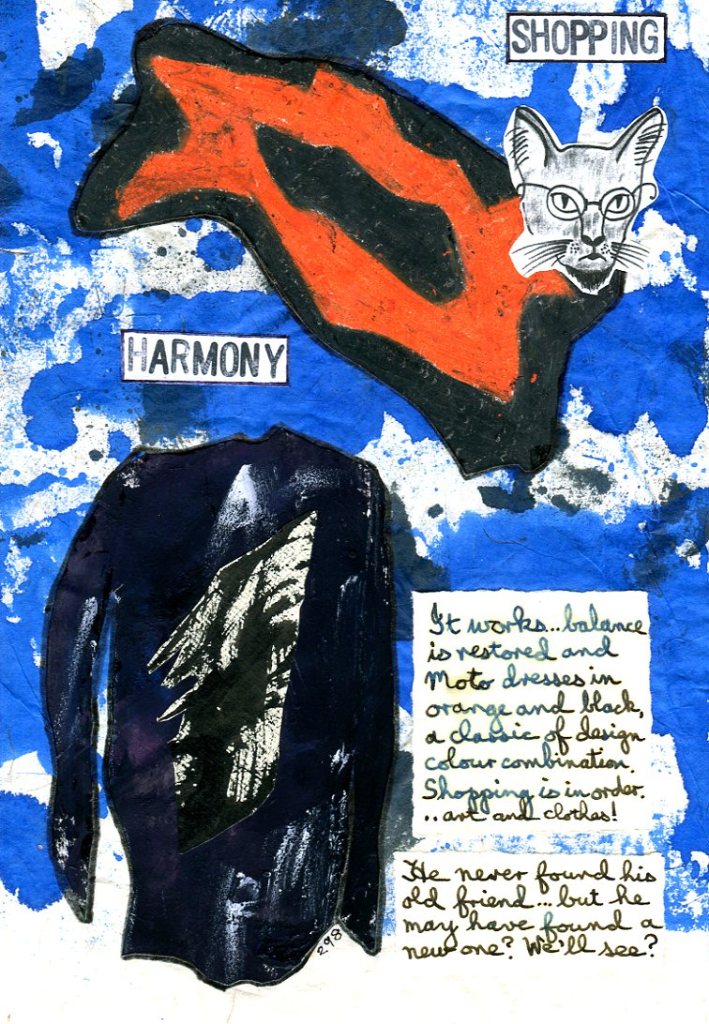 SHOPPING
HARMONY
It works...balance
is restored and
Moto dresses in
orange and black,
a classic of design
colour combination.
Shopping is in order.
..art and clothes!
He never found his
old friend...but he
may have found a
new one? We'll see?
298